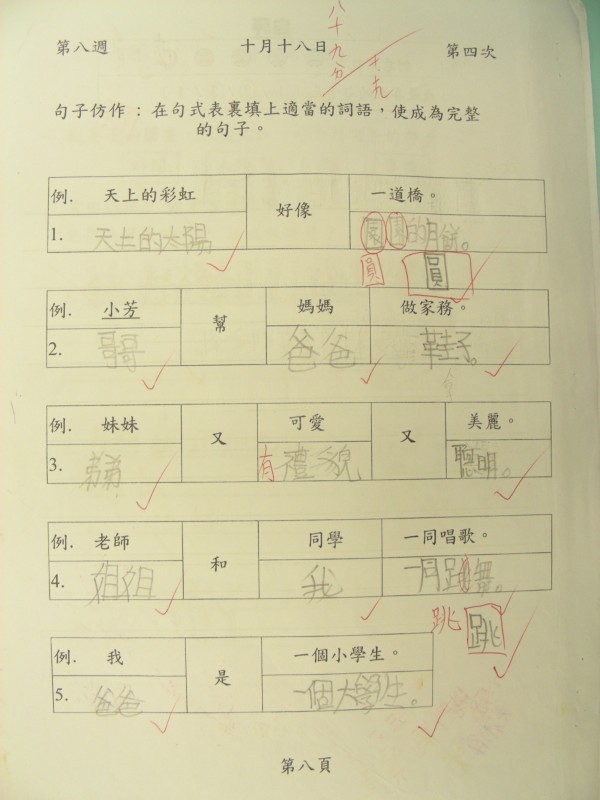 八十九分
十,十九
第八週 十月十八日 第四次
句子仿作:在句式表裏填上適當的詞語,使成為完整
的句子。
例. 天上的彩虹 好像 一道橋。
1. 天上的太陽 圓圓的月餅。
圓 圓
例. 小芳 幫 媽媽 做家務。
2. 哥哥 爸爸 鞋子。
例. 妹妹 又 可愛 又 美麗。
3. 弟弟 有禮貌 聰明。
例. 老師 和 同學 一同唱歌。
4. 姐姐 我 一同跳舞。
跳 跳
例. 我 是 一個小學生。
5. 爸爸 一個大學生。
第八頁